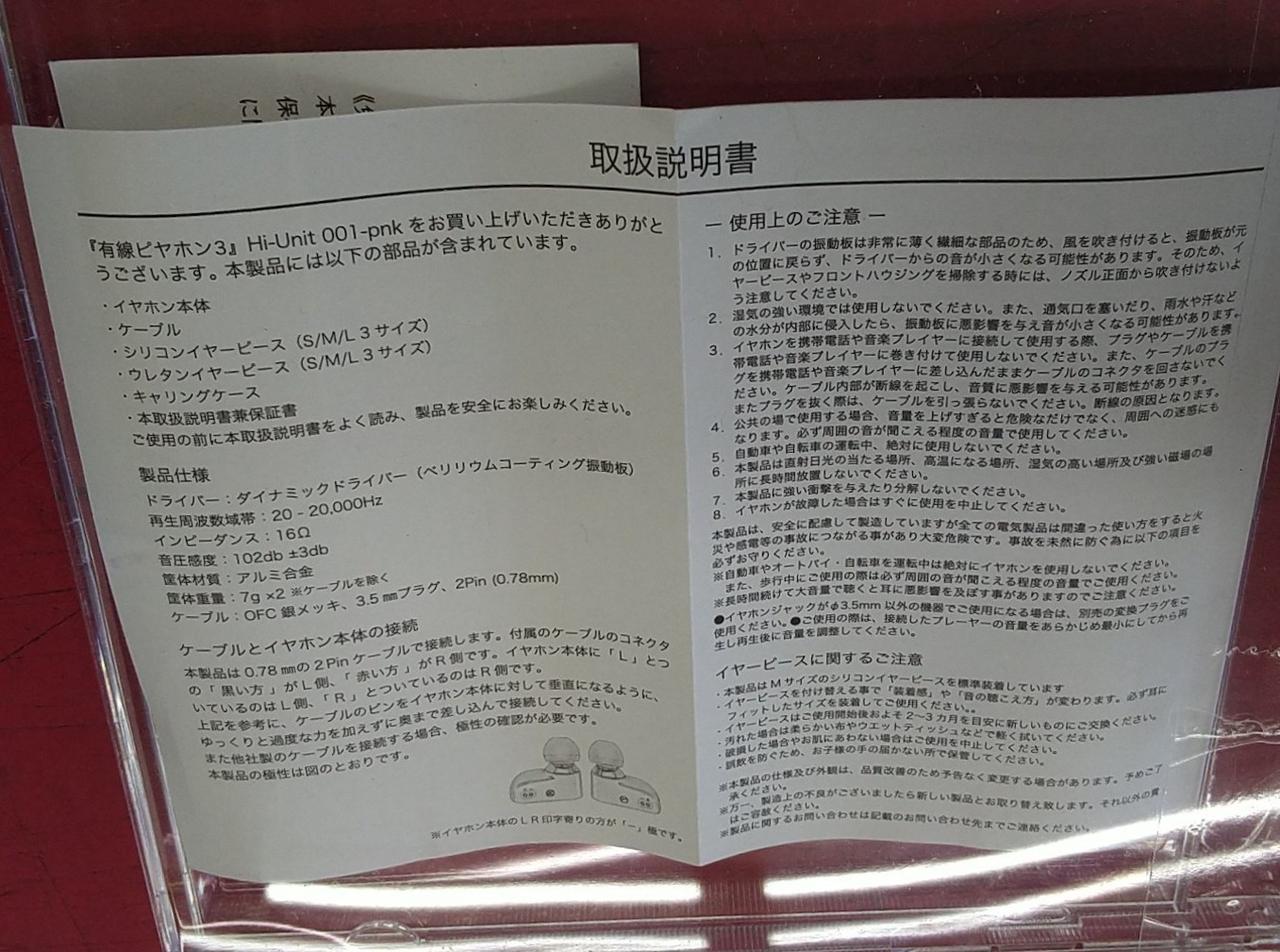 取扱説明書
『有線ピヤホン3』Hi-Unit 001-pnk をお買い上げいただきありがと
うございます。本製品には以下の部品が含まれています。
・イヤホン本体
・ケーブル
・シリコンイヤーピース（S/M/L 3 サイズ）
・ウレタンイヤーピース（S/M/L 3 サイズ）
・キャリングケース
・本取扱説明書兼保証書
ご使用の前に本取扱説明書をよく読み、製品を安全にお楽しみください。
製品仕様
ドライバー：ダイナミックドライバー（ベリリウムコーティング振動板）
再生周波数域帯：20 - 20,000Hz
インピーダンス：16Ω
音圧感度：102db ±3db
筐体材質：アルミ合金
筐体重量：7g ×2 ※ケーブルを除く
ケーブル：OFC 銀メッキ、3.5 ㎜プラグ、2Pin (0.78mm)
ケーブルとイヤホン本体の接続
本製品は 0.78 ㎜の 2 Pin ケーブルで接続します。付属のケーブルのコネクタ
の「 黒い方 」が L 側、「 赤い方 」が R 側です。イヤホン本体に「 L 」とつ
いているのは L 側、「 R 」とついているのは R 側です。
上記を参考に、ケーブルのピンをイヤホン本体に対して垂直になるように、
ゆっくりと過度な力を加えずに奥まで差し込んで接続してください。
また他社製のケーブルを接続する場合、極性の確認が必要です。
本製品の極性は図のとおりです。
※イヤホン本体の L R 印字寄りの方が「 − 」極です。
― 使用上のご注意 ―
1. ドライバーの振動板は非常に薄く繊細な部品のため、風を吹き付けると、振動板が元
の位置に戻らず、ドライバーからの音が小さくなる可能性があります。そのため、イ
ヤーピースやフロントハウジングを掃除する時には、ノズル正面から吹き付けないよ
う注意してください。
2. 湿気の強い環境では使用しないでください。また、通気口を塞いだり、雨水や汗など
の水分が内部に侵入したら、振動板に悪影響を与え音が小さくなる可能性があります。
3. イヤホンを携帯電話や音楽プレイヤーに接続して使用する際、プラグやケーブルを携
帯電話や音楽プレイヤーに巻き付けて使用しないでください。また、ケーブルのプラ
グを携帯電話や音楽プレイヤーに差し込んだままケーブルのコネクタを回さないでく
ださい。ケーブル内部が断線を起こし、音質に悪影響を与える可能性があります。
またプラグを抜く際は、ケーブルを引っ張らないでください。断線の原因となります。
4. 公共の場で使用する場合、音量を上げすぎると危険なだけでなく、周囲への迷惑にも
なります。必ず周囲の音が聞こえる程度の音量で使用してください。
5. 自動車や自転車の運転中、絶対に使用しないでください。
6. 本製品は直射日光の当たる場所、高温になる場所、湿気の高い場所及び強い磁場の場
所に長時間放置しないでください。
7. 本製品に強い衝撃を与えたり分解しないでください。
8. イヤホンが故障した場合はすぐに使用を中止してください。
本製品は、安全に配慮して製造していますが全ての電気製品は間違った使い方をすると火
災や感電等の事故につながる事があり大変危険です。事故を未然に防ぐ為に以下の項目を
必ずお守りください。
※自動車やオートバイ・自転車を運転中は絶対にイヤホンを使用しないでください。
また、歩行中にご使用の際は必ず周囲の音が聞こえる程度の音量でご使用ください。
※長時間続けて大音量で聴くと耳に悪影響を及ぼす事がありますのでご注意ください。
●イヤホンジャックがφ3.5mm 以外の機器でご使用になる場合は、別売の変換プラグをご
使用ください。●ご使用の際は、接続したプレーヤーの音量をあらかじめ最小にしてから再
生し再生後に音量を調整してください。
イヤーピースに関するご注意
・本製品は M サイズのシリコンイヤーピースを標準装着しています
・イヤーピースを付け替える事で「装着感」や「音の聴こえ方」が変わります。必ず耳に
フィットしたサイズを装着してご使用ください。。
・イヤーピースはご使用開始後およそ 2〜3 カ月を目安に新しいものにご交換ください。
・汚れた場合は柔らかい布やウエットティッシュなどで軽く拭いてください。
・破損した場合やお肌にあわない場合はご使用を中止してください。
・誤飲を防ぐため、お子様の手の届かない所で保管してください。
※本製品の仕様及び外観は、品質改善のため予告なく変更する場合があります。予めご了
承ください。
※万一、製造上の不良がございましたら新しい製品とお取り替え致します。それ以外の責
はご容赦ください。
※製品に関するお問い合わせは記載のお問い合わせ先までご連絡ください。